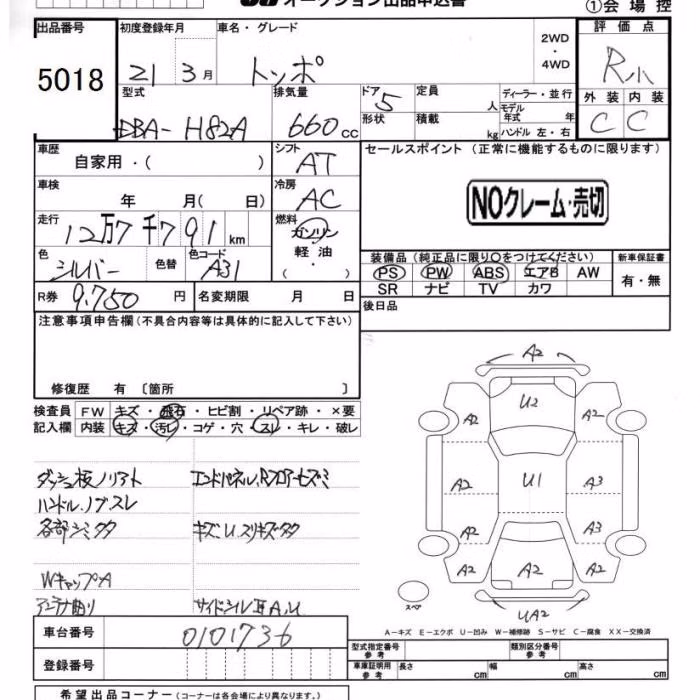 オークション出品申込書
①会場控
出品番号
5018
初度登録年月
21年 3月
車名・グレード
トッポ
2WD
・
4WD
評価点
R小
外装 内装
C C
型式
DBA-H82A
排気量
660cc
ドア
5
形状
定員
人
積載
kg
ディーラー・並行
モデル
年式 年
ハンドル 左・右
車歴
自家用・( )
シフト
AT
セールスポイント (正常に機能するものに限ります)
NOクレーム・売切
車検
年 月( 日)
冷房
AC
走行
12万7千791km
燃料
ガソリン
軽油
・
色
シルバー
色替
色コード
A31
装備品(純正品に限り○をつけてください)
PS PW ABS エアB AW
SR ナビ TV カワ
新車保証書
有・無
R券
9,750円
名変期限 月 日
後日品
注意事項申告欄(不具合内容等は具体的に記入して下さい)
修復歴 有 〔箇所 〕
検査員
記入欄
FW キズ・飛石・ヒビ割・リペア跡・×要
内装 キズ・汚レ・コゲ・穴・スレ・キレ・破レ
ダッシュ板ノリアト
ハンドル.ノブスレ
各部シミタタ
Wキャップ.A
アンテナ曲り
エンドパネル.Rフロアーセズミ
キズ.U.スリキズタタ
サイドシルエA.U
A2
U2
A2 A2
A2 U1 A3
A2 A3
A2 A2 A2
UA2
スペア
A-キズ E-エクボ U-凹み W-補修跡 S-サビ C-腐食 XX-交換済
車台番号
0101736
登録番号
型式指定番号
参考
類別区分番号
参考
車庫証明用
参考
長さ cm
幅 cm
高さ cm
希望出品コーナー (コーナーは各会場により異なります。)